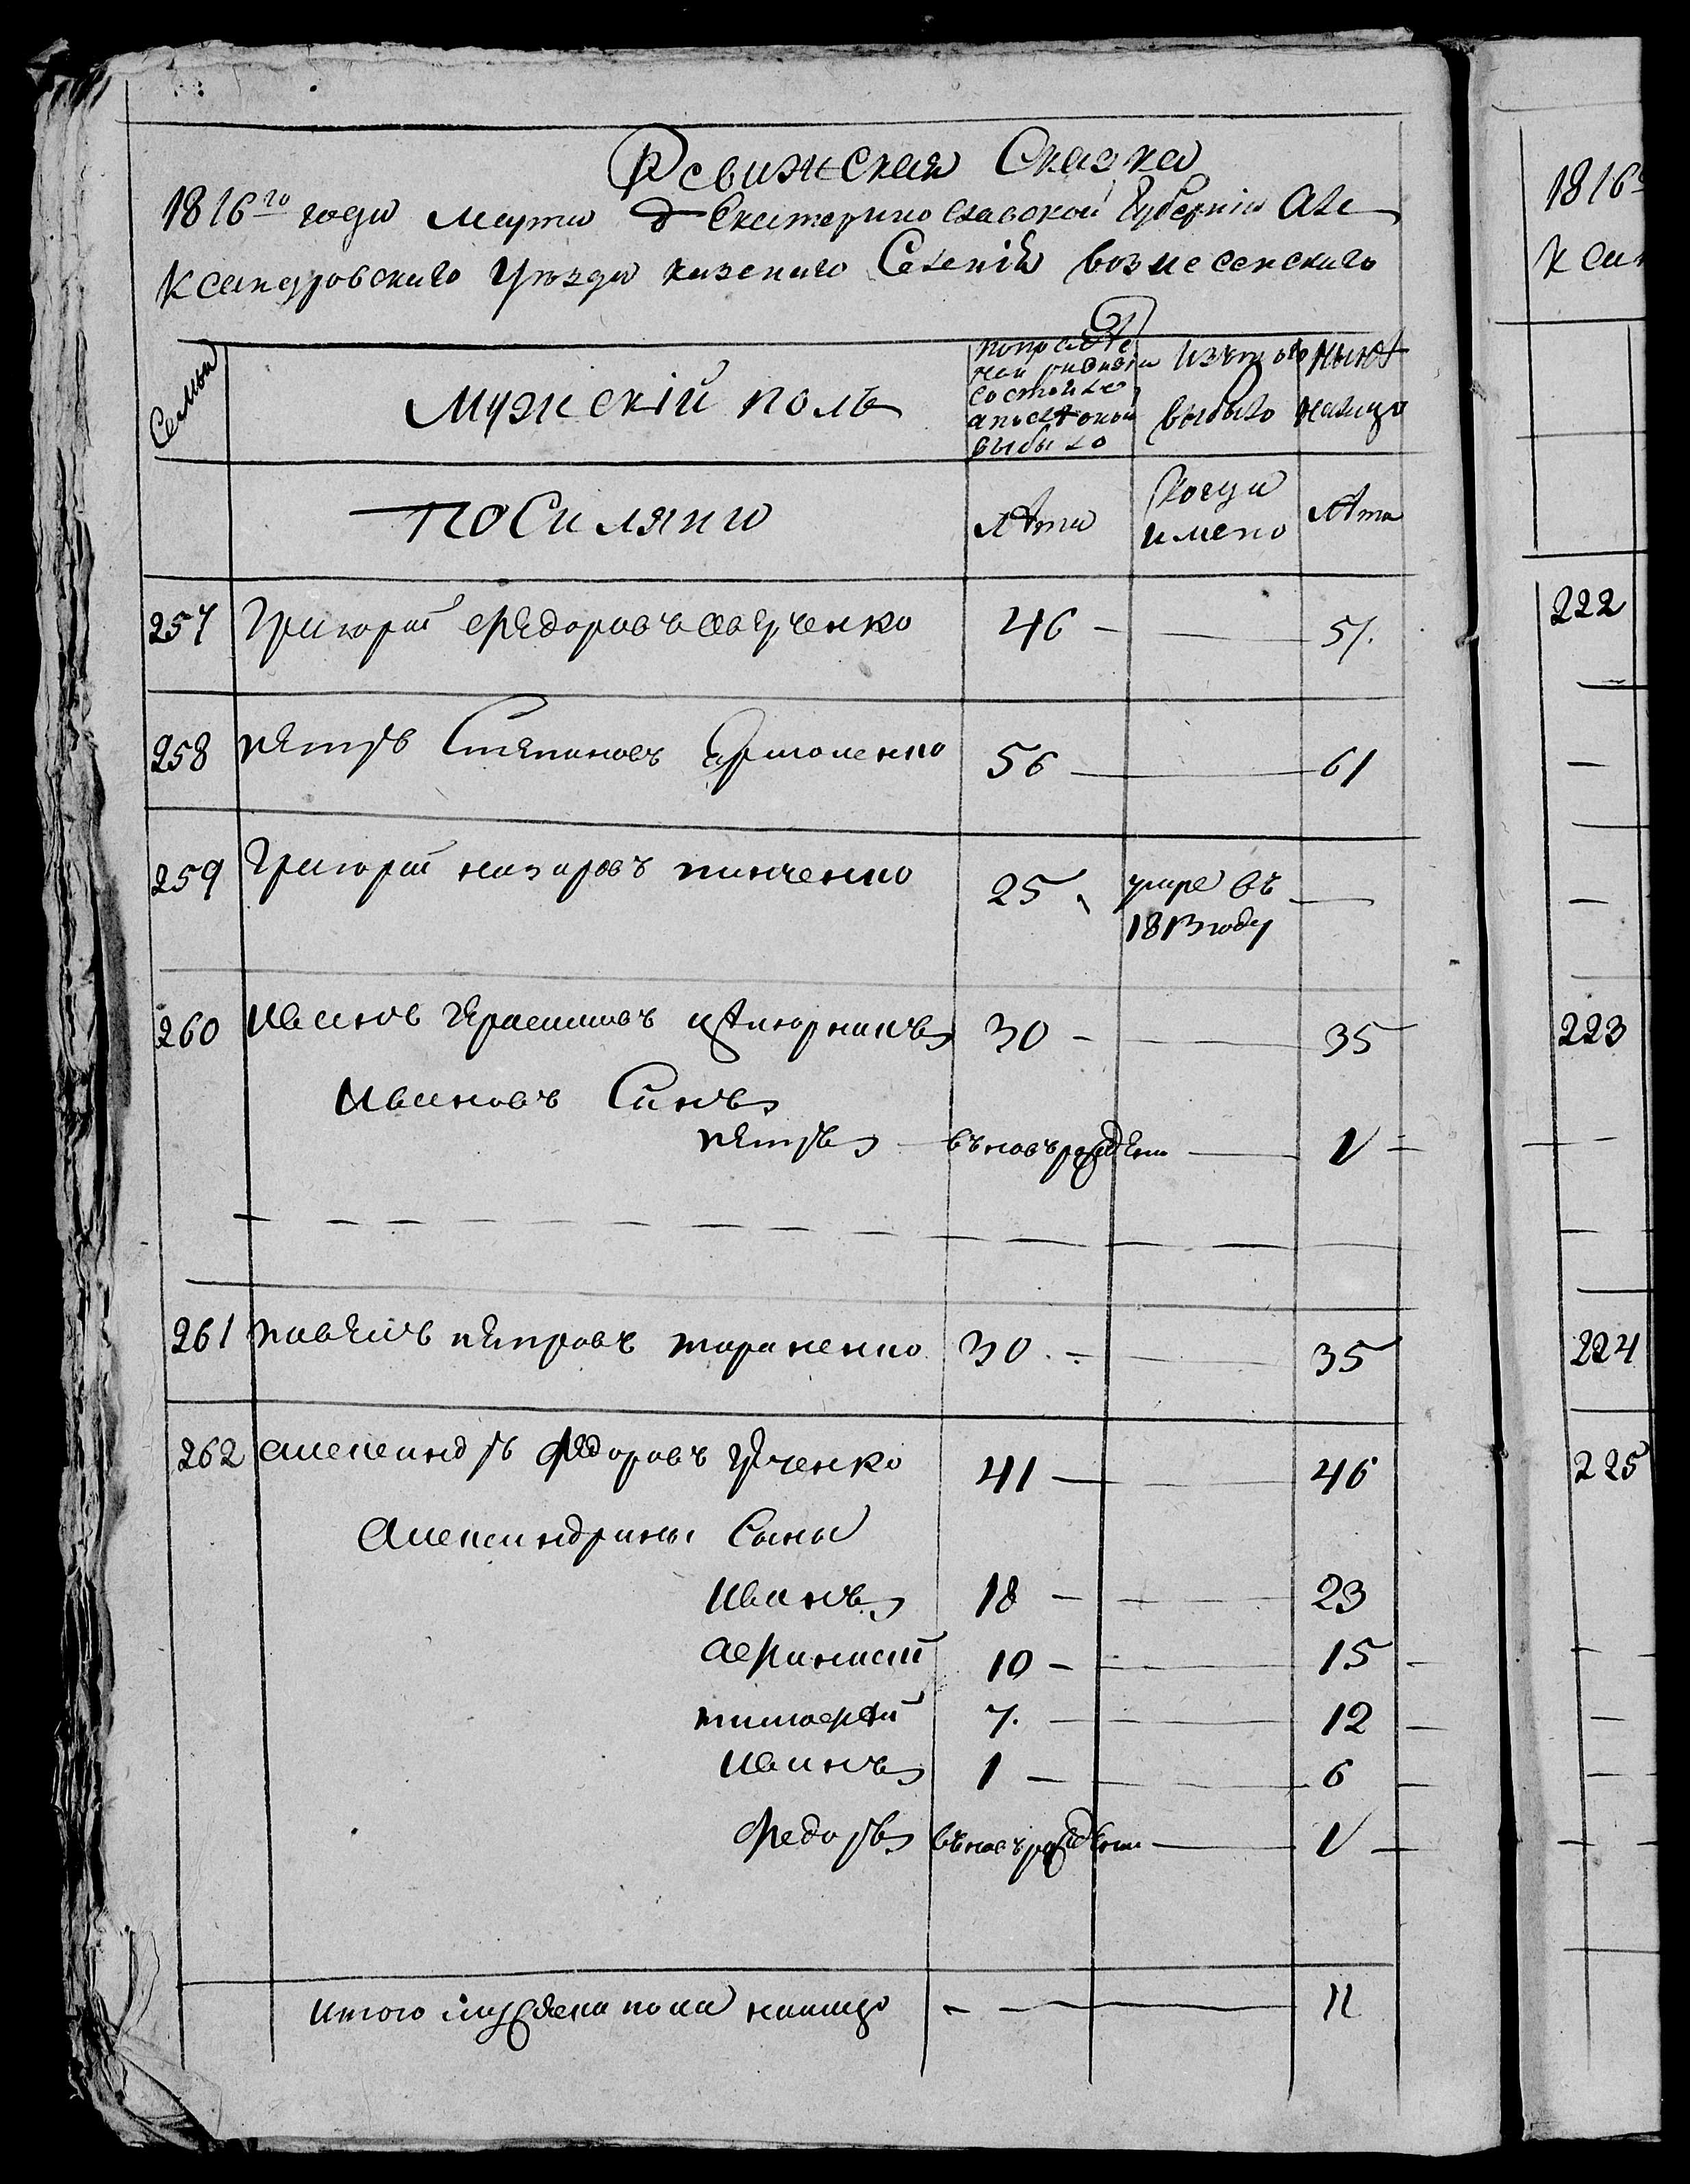 Ревижская Сказка
1816го года марта д Екатеринославской Губерніи Але
ксандровскаго уѣзда казенаго Селенія вознесенскаго
Семьи
мужскій полъ
попослѣде
ней ревизіи
состояло
и послѣ оной
выбыло
Изъ того
выбыло
ныне
налицо
Поселяне
лѣта
когда
имено
лѣта
257 Григорій Федоровъ савченко 46 — 51.
258 петръ Степановъ Ермоленко 56 — 61
259 Григорій назаровъ 25 умре въ —
1813 году
260 Иванъ Герасимовъ 30 — 35
Ивановъ Синъ
петръ въновърожденъ — 1/
261 павелъ петровъ тараненко 30 — 35
262 александръ федоровъ 41 — 46
Александрины Сыны
Иванъ 18 — 23
афанасий 10 — 15
тимофей 7. — 12
Иванъ 1 — 6
федоръ въновърожденъ — 1/
итого мужеска пола налицо — 11
1816
ксан
222
223
224
225